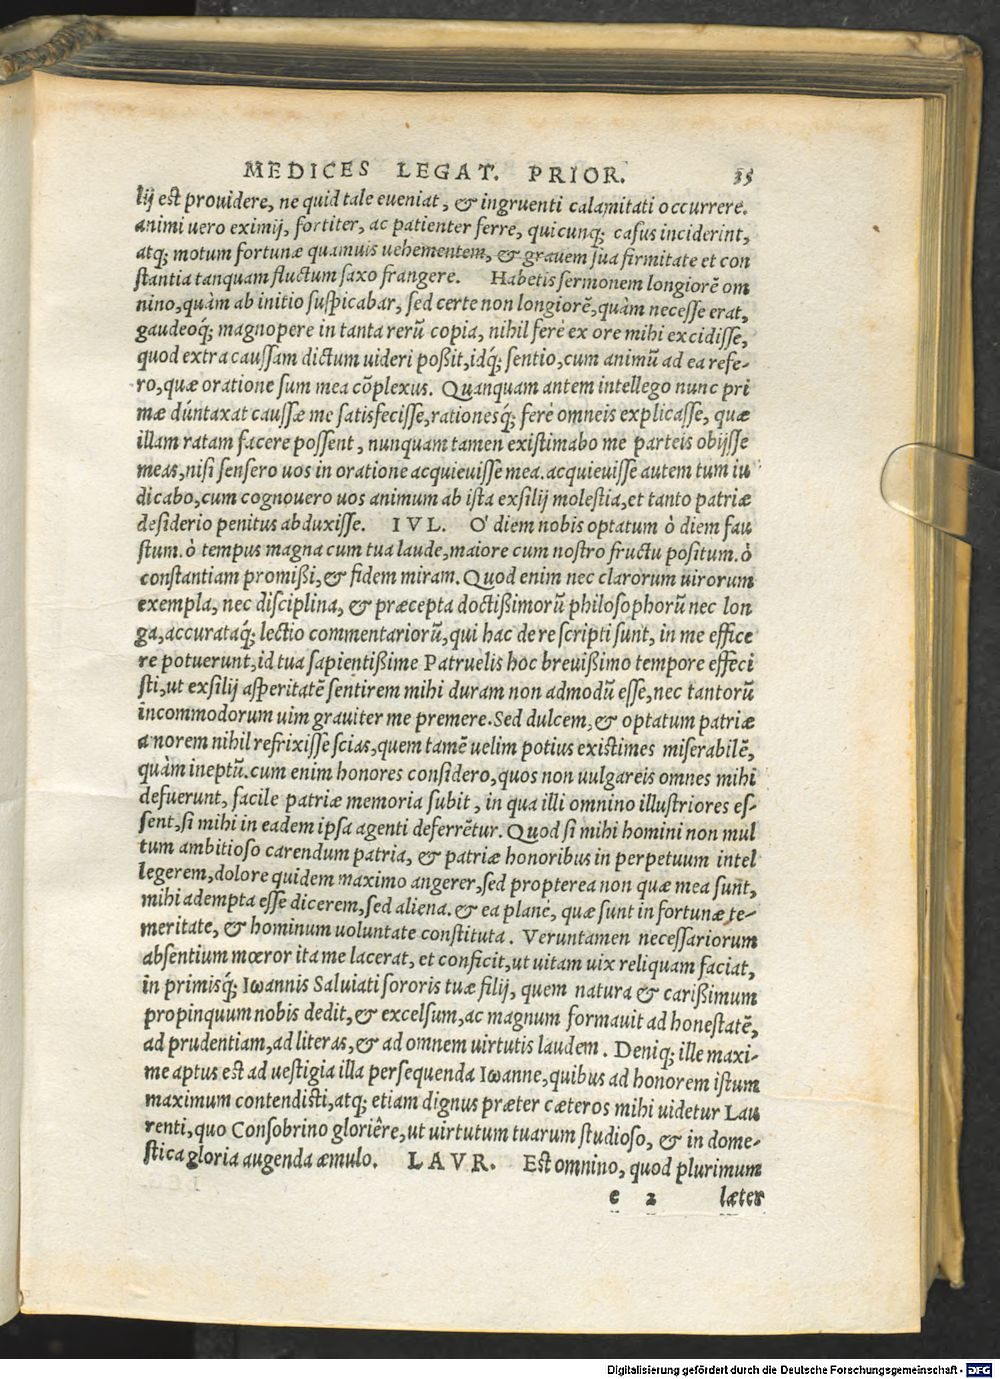 MEDICES LEGAT. PRIOR. 35
lij est prouidere, ne quid tale eueniat, & ingruenti calamitati occurrere.
animi uero eximij, fortiter, ac patienter ferre, quicunq; casus inciderint,
atq; motum fortunæ quamuis uehementem, & grauem sua firmitate et con
stantia tanquam fluctum saxo frangere. Habetis sermonem longiorē om
nino, quàm ab initio suspicabar, sed certe non longiorē, quàm necesse erat,
gaudeoq́; magnopere in tanta rerū copia, nihil ferè ex ore mihi excidisse,
quod extra caussam dictum uideri poßit, idq́; sentio, cum animū ad ea refe-
ro, quæ oratione sum mea cōplexus. Quanquam antem intellego nunc pri
mæ dúntaxat caussæ me satisfecisse, rationesq́; ferè omneis explicasse, quæ
illam ratam facere possent, nunquam tamen existimabo me parteis obijsse
meas, nisi sensero uos in oratione acquieuisse mea. acquieuisse autem tum iu
dicabo, cum cognouero uos animum ab ista exsilij molestia, et tanto patriæ
desiderio penitus abduxisse. IVL. O' diem nobis optatum ò diem fau
stum. ò tempus magna cum tua laude, maiore cum nostro fructu positum. ò
constantiam promißi, & fidem miram. Quod enim nec clarorum uirorum
exempla, nec disciplina, & præcepta doctißimorū philosophorū nec lon
ga, accurataq́; lectio commentariorū, qui hac de re scripti sunt, in me effice
re potuerunt, id tua sapientißime Patruelis hoc breuißimo tempore effeci
sti, ut exsilij asperitatē sentirem mihi duram non admodū esse, nec tantorū
incommodorum uim grauiter me premere. Sed dulcem, & optatum patriæ
a norem nihil refrixisse scias, quem tamē uelim potius existimes miserabilē,
quàm ineptū. cum enim honores considero, quos non uulgareis omnes mihi
defuerunt, facile patriæ memoria subit, in qua illi omnino illustriores es-
sent, si mihi in eadem ipsa agenti deferrētur. Quod si mihi homini non mul
tum ambitioso carendum patria, & patriæ honoribus in perpetuum intel
legerem, dolore quidem maximo angerer, sed propterea non quæ mea sunt,
mihi adempta esse dicerem, sed aliena. & ea planè, quæ sunt in fortunæ te-
meritate, & hominum uoluntate constituta. Veruntamen necessariorum
absentium mœror ita me lacerat, et conficit, ut uitam uix reliquam faciat,
in primisq́; Iωannis Saluiati sororis tuæ filij, quem natura & carißimum
propinquum nobis dedit, & excelsum, ac magnum formauit ad honestatē,
ad prudentiam, ad literas, & ad omnem uirtutis laudem. Deniq; ille maxi-
me aptus est ad uestigia illa persequenda Iωanne, quibus ad honorem istum
maximum contendisti, atq; etiam dignus præter cæteros mihi uidetur Lau
renti, quo Consobrino gloriêre, ut uirtutum tuarum studioso, & in dome-
stica gloria augenda æmulo. LAVR. Est omnino, quod plurimum
e 2 læter
Digitalisierung gefördert durch die Deutsche Forschungsgemeinschaft - DFG